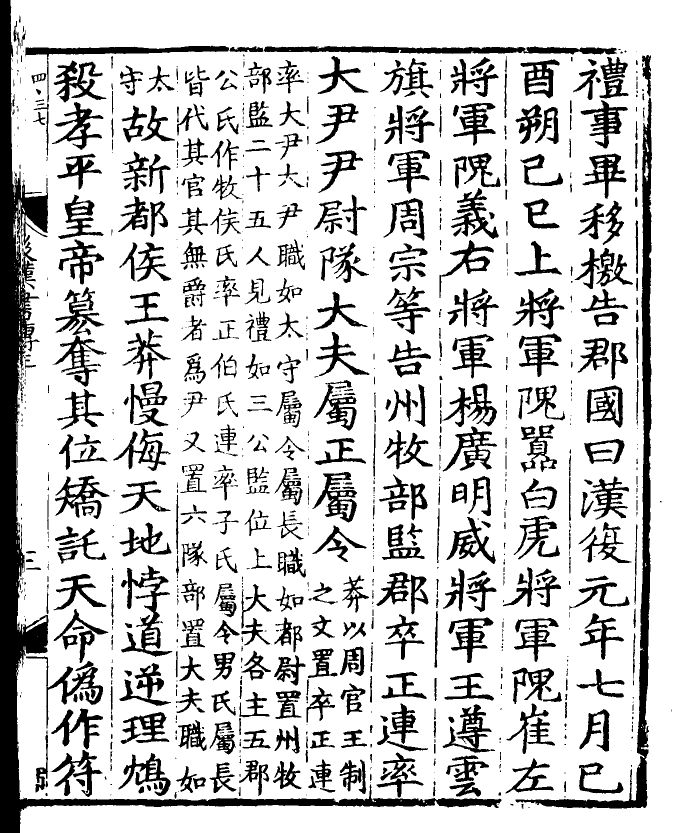 禮事畢移檄告郡國曰漢復元年七月己
酉朔己巳上將軍隗囂白虎將軍隗崔左
將軍隗義右將軍楊廣明威將軍王遵雲
旗將軍周宗等告州牧部監郡卒正連率
大尹尹尉隊大夫屬正屬令
莽以周官王制
之文置卒正連
率大尹大尹職如太守屬令屬長職如都尉置州牧
部監二十五人見禮如三公監位上大夫各主五郡
公氏作牧侯氏率正伯氏連率子氏屬令男氏屬長
皆代其官其無爵者爲尹又置六隊部置大夫職如
太
守
故新都侯王莽慢侮天地悖道逆理鴆
殺孝平皇帝篡奪其位矯託天命僞作符
四·三七
漢書傳三
三